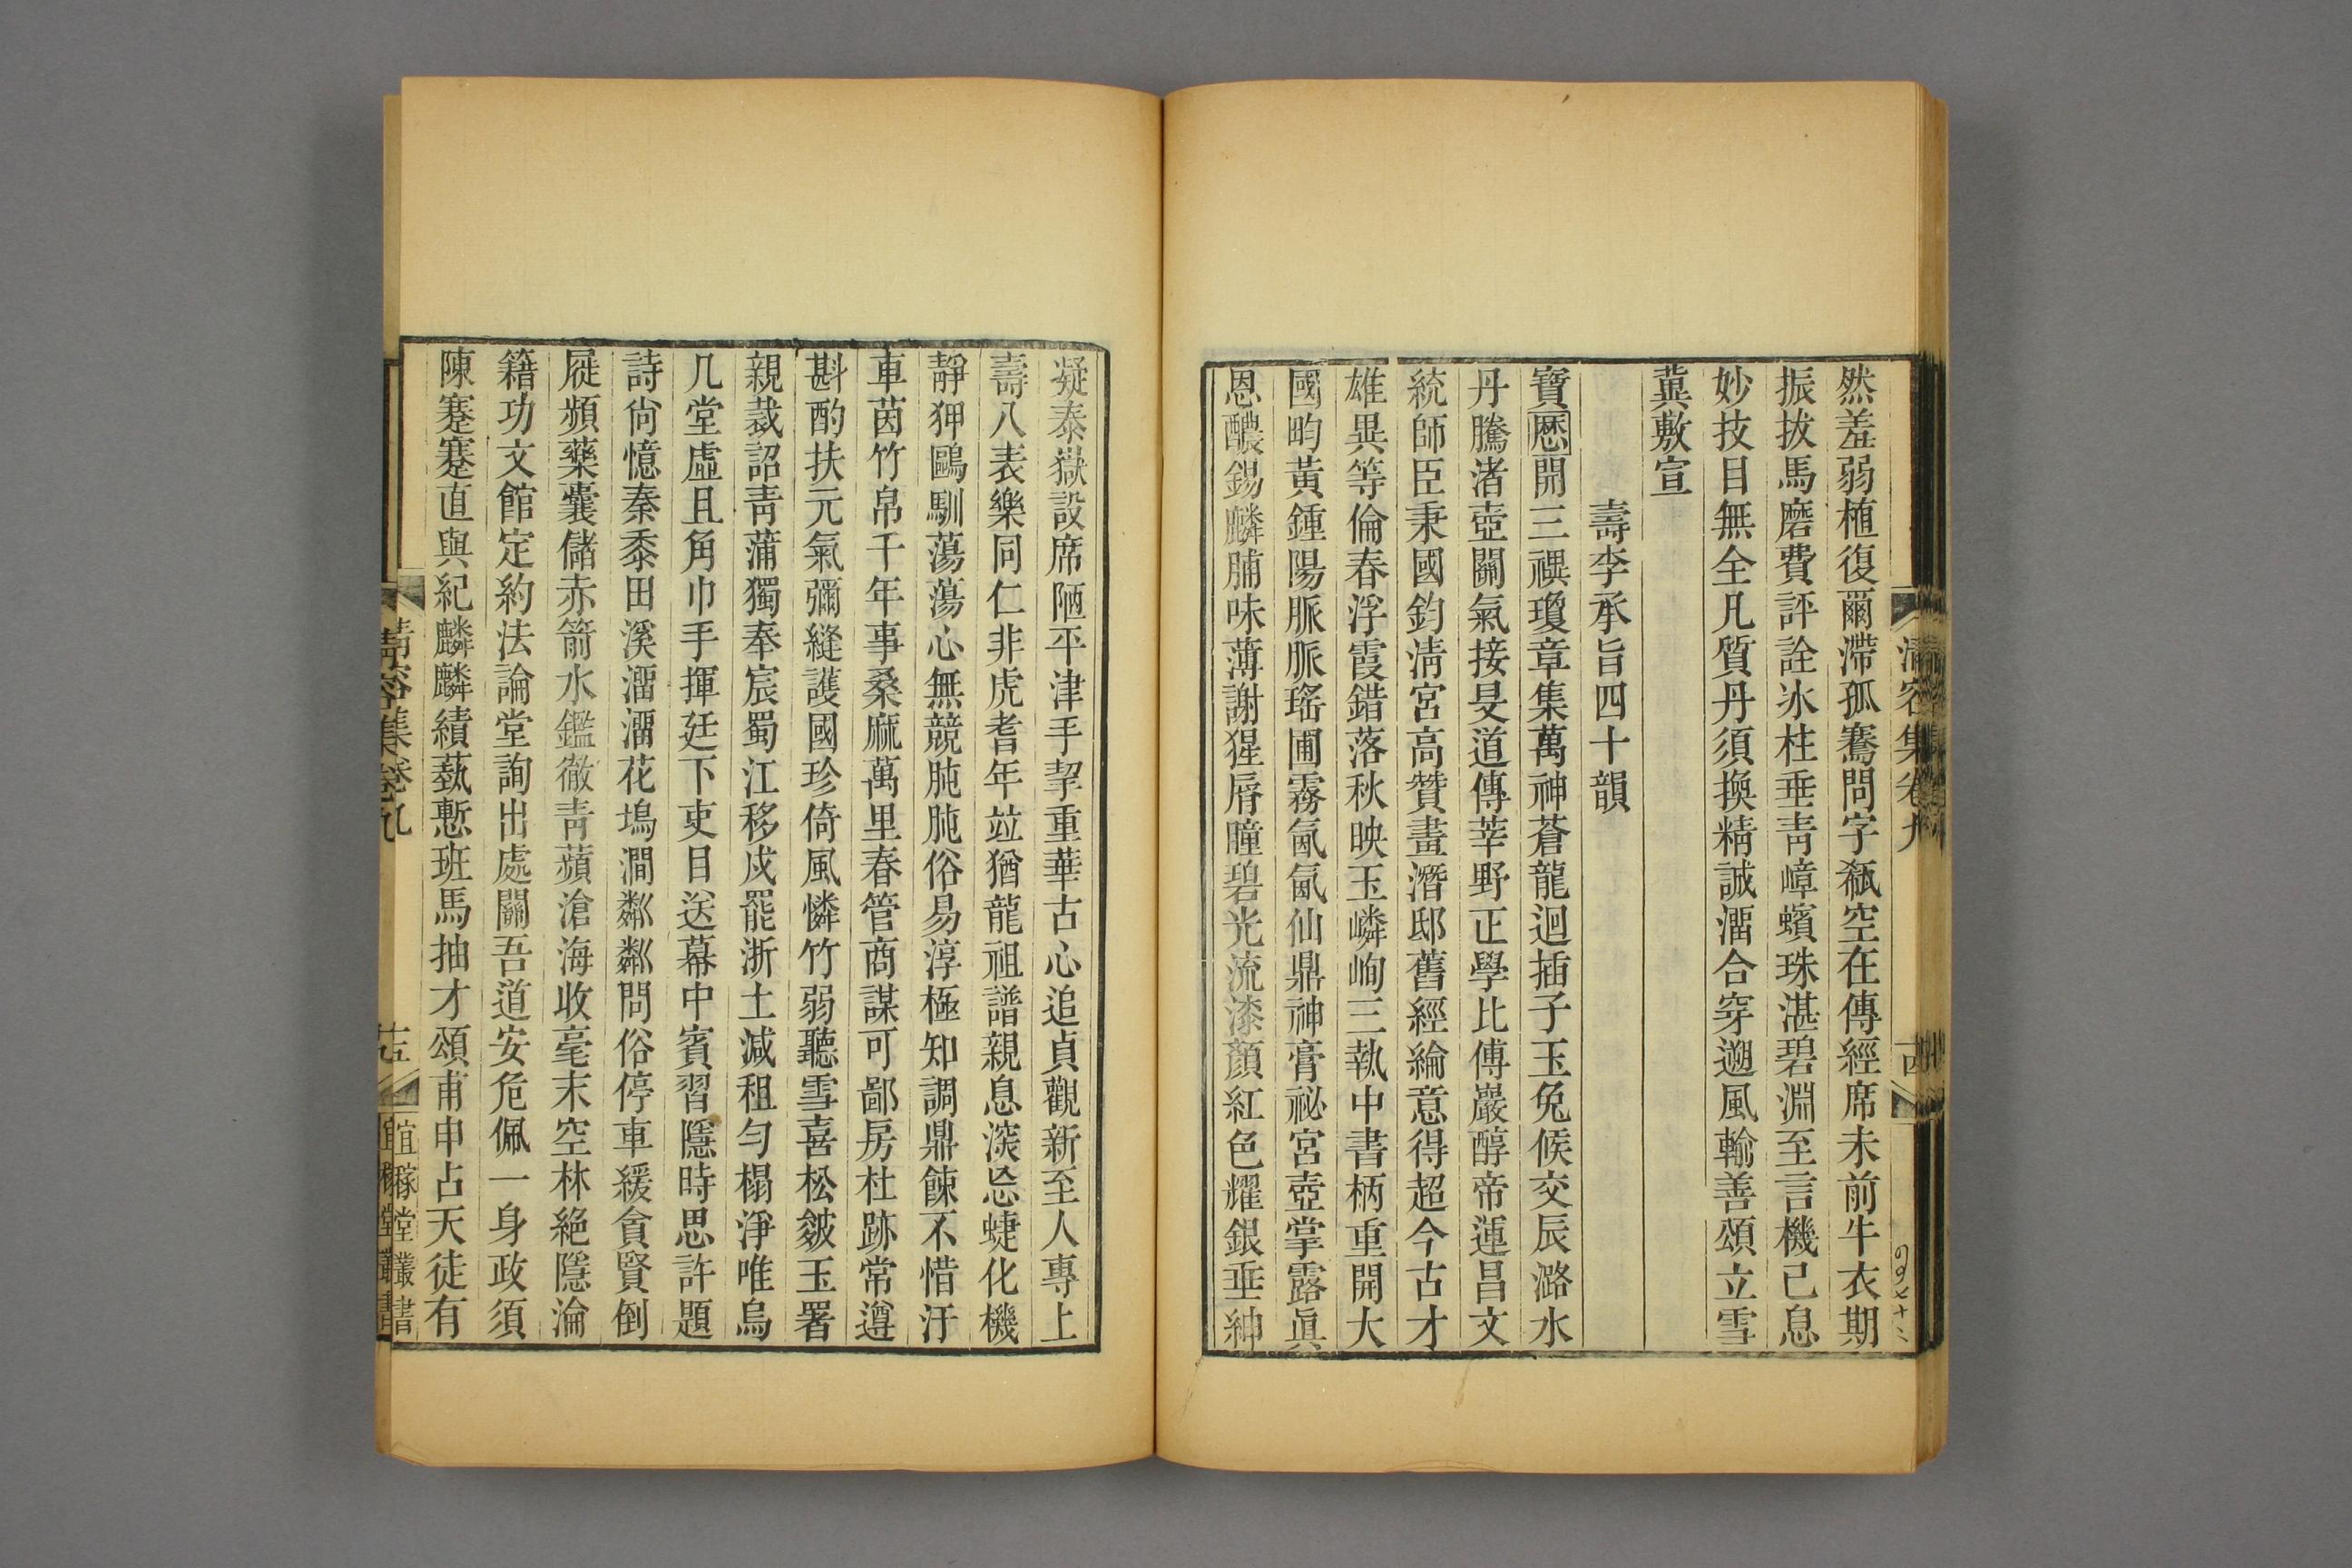 然羞弱植復爾滯孤騫問字瓻空在傳經席未前牛衣期
振拔馬磨費評詮氷柱垂靑嶂蠙珠湛碧淵至言機已息
妙技目無全凡質丹須換精誠㴞合穿遡風輸善頌立雪
冀敷宣
壽李承旨四十韻
寶厯開三禩瓊章集萬神蒼龍迴插子玉兔候交辰潞水
丹騰渚壺關氣接旻道傳莘野正學比傅巖醇帝運昌文
統師臣秉國鈞淸宮高贊畫潛邸舊經綸意得超今古才
雄異等倫春浮霞錯落秋映玉嶙峋三執中書柄重開大
國畇黃鍾陽脈脈瑤圃霧氤氤仙鼎神膏祕宮壺掌露眞
恩醲錫麟脯味薄謝猩脣瞳碧光流漆顏紅色耀銀垂紳
凝泰嶽設席陋平津手挈重華古心追貞觀新至人專上
壽八表樂同仁非虎耆年竝猶龍祖譜親息湥忘蜨化機
靜狎鷗馴蕩蕩心無競肫肫俗易淳極知調鼎餗不惜汙
車茵竹帛千年事桑麻萬里春管商謀可鄙房杜跡常遵
斟酌扶元氣彌縫護國珍倚風憐竹弱聽雪喜松皴玉署
親裁詔靑蒲獨奉宸蜀江移戍罷浙土減租勻榻淨唯烏
几堂虛且角巾手揮廷下吏目送幕中賓習隱時思許題
詩尙憶秦黍田溪㴞㴞花塢澗粼粼問俗停車緩貪賢倒
屣頻藥囊儲赤箭水鑑徹靑蘋滄海收毫末空林絕隱淪
籍功文館定約法論堂詢出處關吾道安危佩一身政須
陳蹇蹇直與紀麟麟績蓺慙班馬抽才頌甫申占天徒有
淸容集卷九
十四
淸容集卷九
十五
宜稼堂叢書